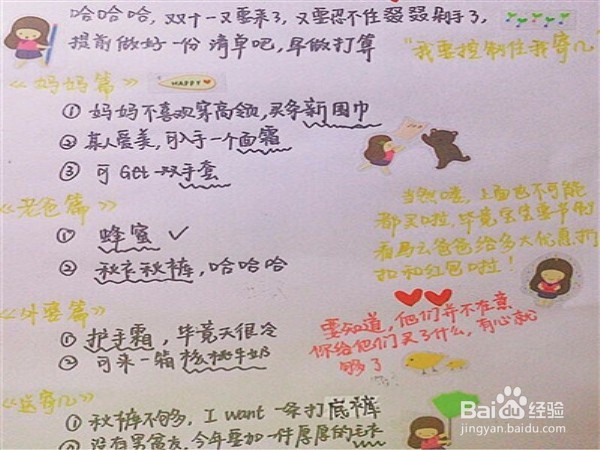 哈哈哈，双十一又要来了，又要忍不住剁手了，
提前做好一份清单吧，早做打算
“我要控制住我寄几”
《妈妈篇》
HAPPY
① 妈妈不喜欢穿高领，买条新围巾
② 真人爱美，可入手一个面霜
③ 可Get一双手套
《老爸篇》
① 蜂蜜 ✓
② 秋衣秋裤，哈哈哈
当然喽，上面也不可能
都买啦，毕竟学生要节俭
看马云爸爸给多大优惠折
扣和红包啦！
《外婆篇》
① 护手霜，毕竟天很冷
② 可来一箱核桃牛奶
要知道，他们并不在意
你给他们买了什么，有心就
够了
《送寄几》
① 秋裤不够多，I want 一条打底裤
② 没有男朋友，今年要加一件厚厚的毛衣
Baidu经验
jingyan.baidu.com